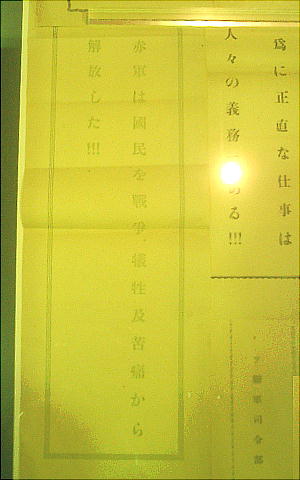 爲に正直な仕事は
人々の義務 ある!!!
軍司令部
赤軍は國民を戰爭、犠牲及苦痛から
解放した!!!